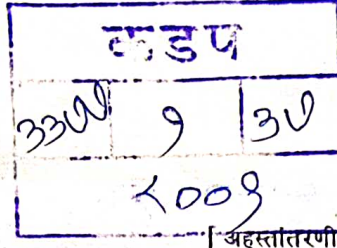 कडप
१ ३७
२००१
[ अहस्तांतरणी